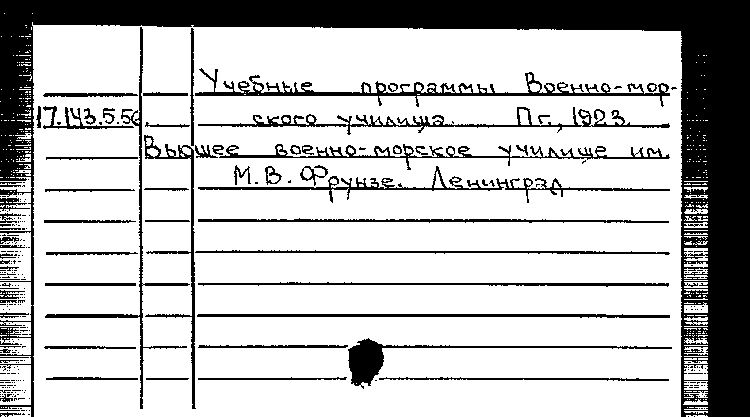 Учебные программы Военно-мор-
17.143.5.56. ского училища. Пг., 1923.
Высшее военно-морское училище им.
М.В. Фрунзе. Ленинград